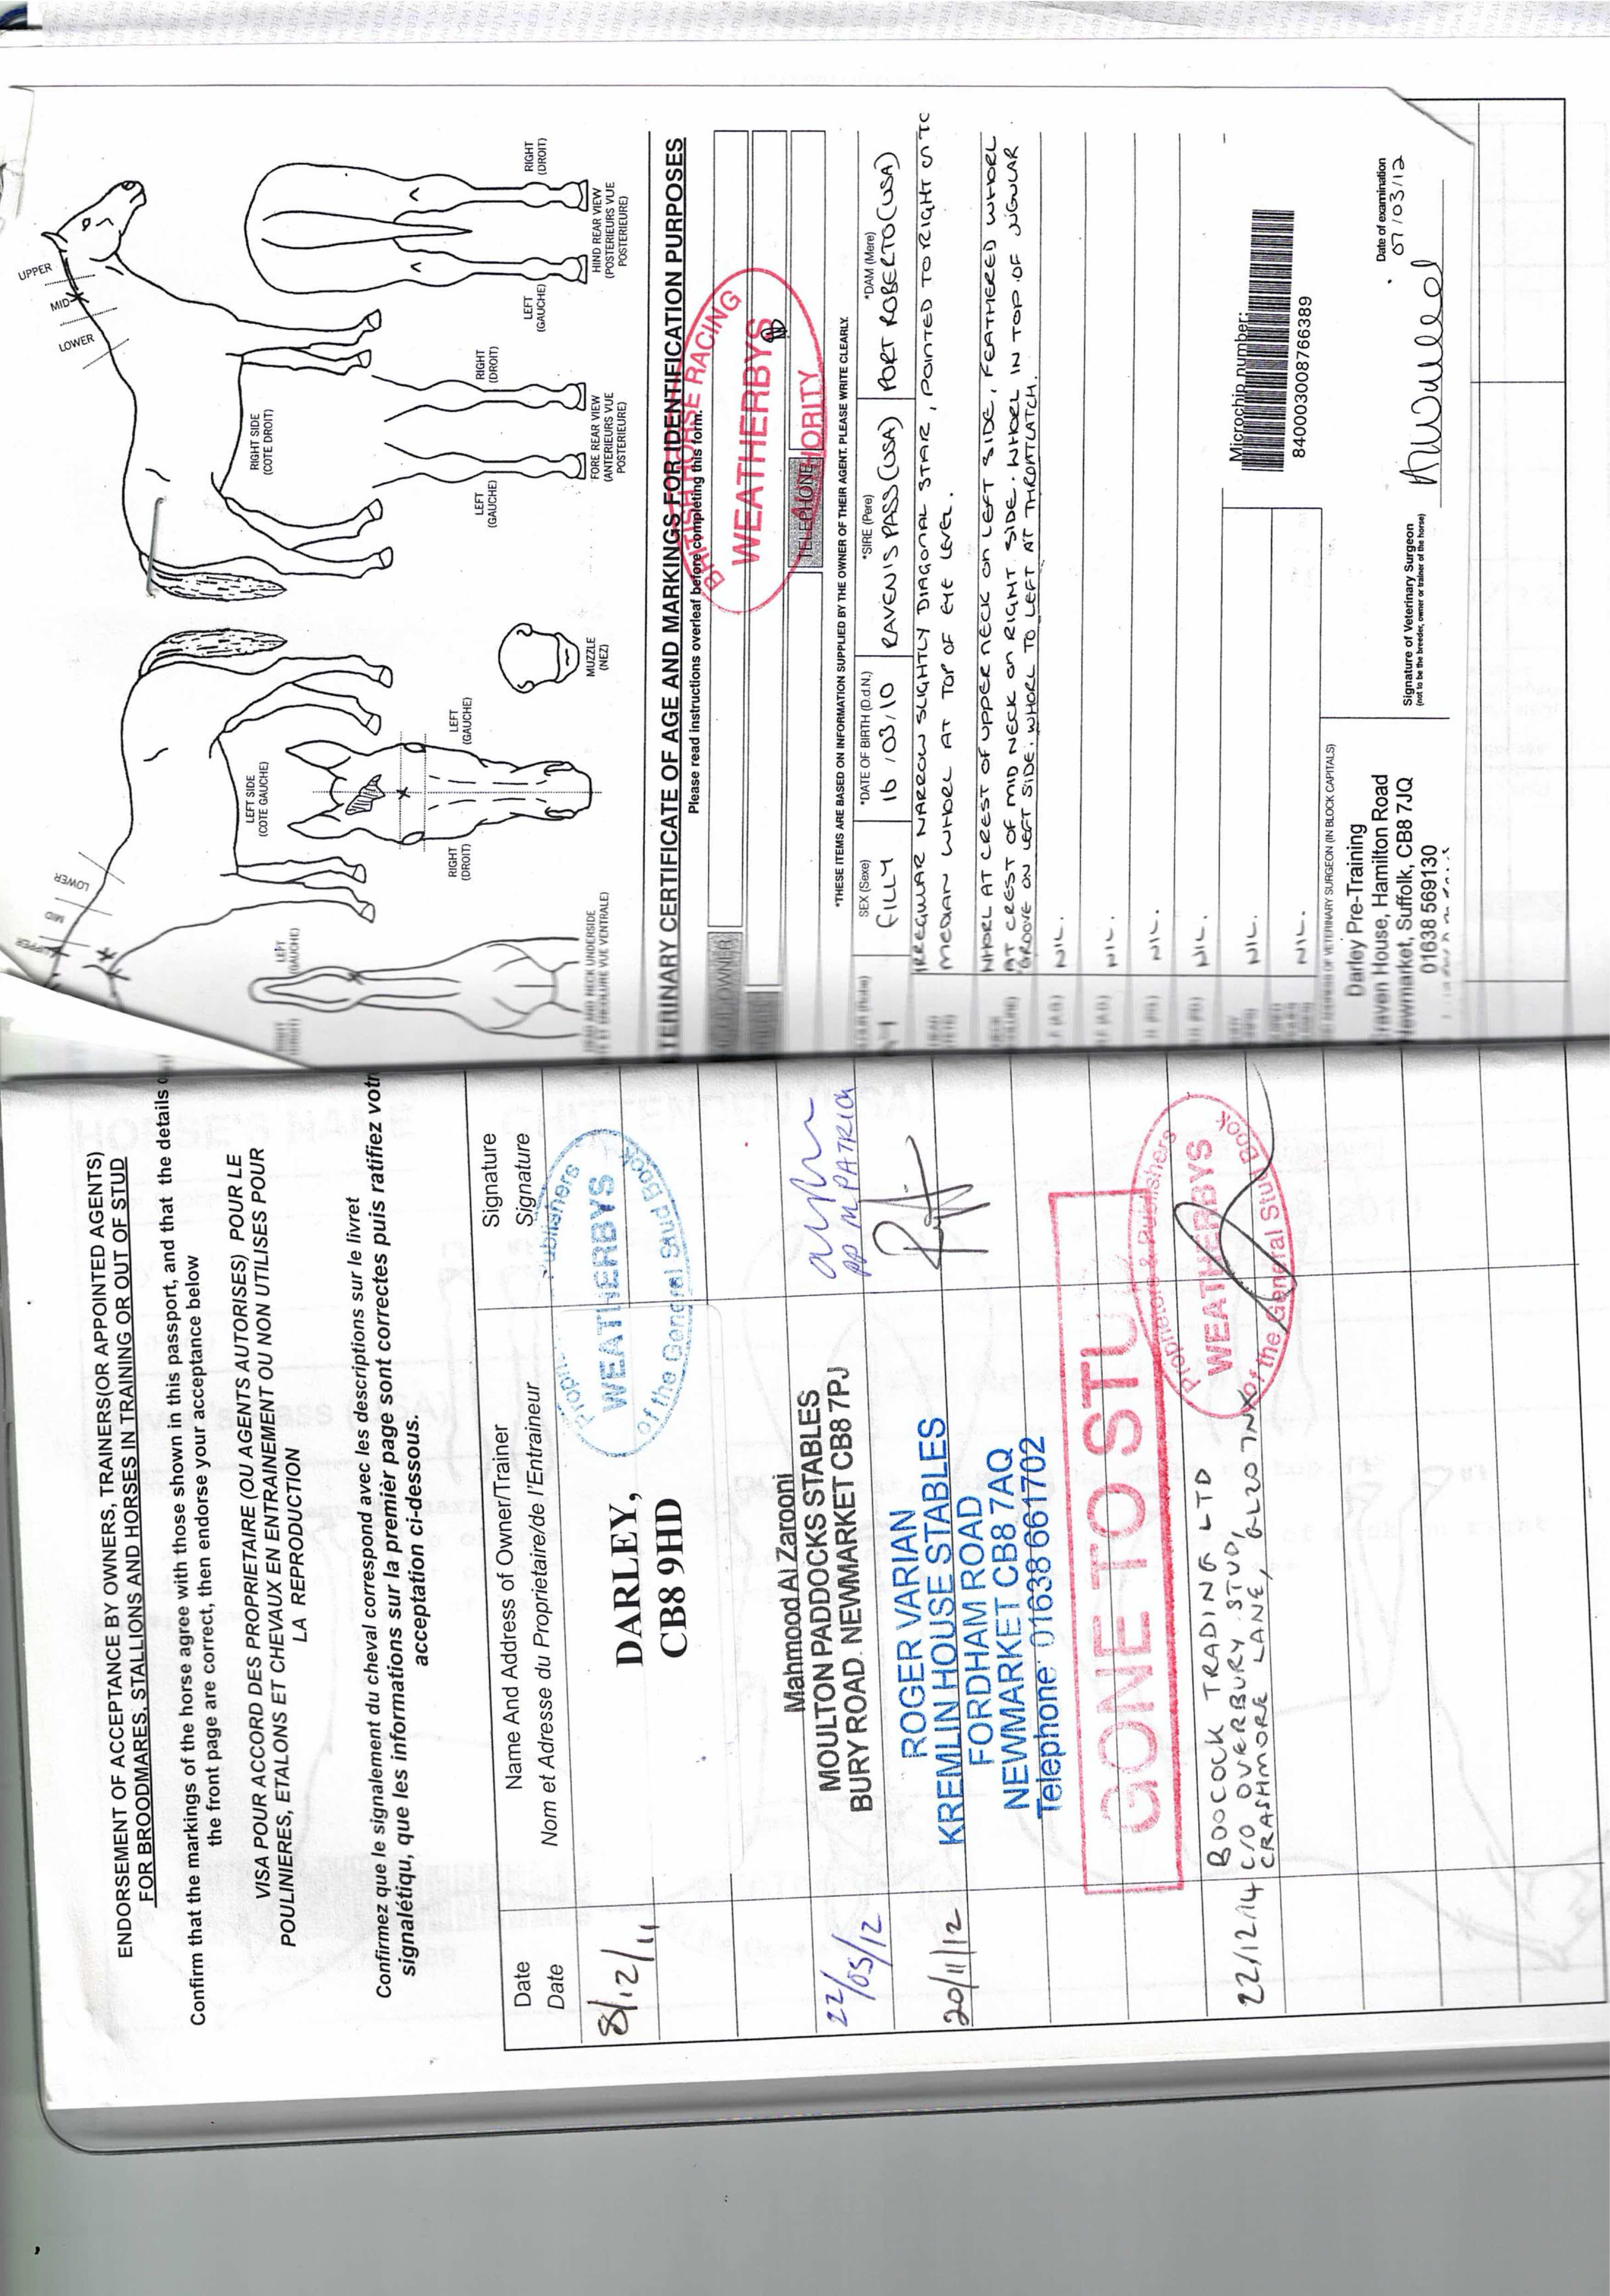 ENDORSEMENT OF ACCEPTANCE BY OWNERS, TRAINERS(OR APPOINTED AGENTS)
FOR BROODMARES, STALLIONS AND HORSES IN TRAINING OR OUT OF STUD
Confirm that the markings of the horse agree with those shown in this passport, and that the details
the front page are correct, then endorse your acceptance below
VISA POUR ACCORD DES PROPRIETAIRE (OU AGENTS AUTORISES) POUR LE
POULINIERES, ETALONS ET CHEVAUX EN ENTRAINEMENT OU NON UTILISES POUR
LA REPRODUCTION
Confirmez que le signalement du cheval correspond avec les descriptions sur le livret
signalétiqu, que les informations sur la premièr page sont correctes puis ratifiez votr
acceptation ci-dessous.
Date Name And Address of Owner/Trainer Signature
Date Nom et Adresse du Proprietaire/de l'Entraineur Signature
8/12/11 DARLEY,
CB8 9HD
Publishers
WEATHERBYS
of the General Stud Book
Mahmood Al Zarooni
22/05/12 MOULTON PADDOCKS STABLES
BURY ROAD. NEWMARKET CB8 7PJ
PP M.PATRICK
ROGER VARIAN
20/11/12 KREMLIN HOUSE STABLES
FORDHAM ROAD
NEWMARKET CB8 7AQ
Telephone: 01638 661702
GONE TO STU
Proprietors & Publishers
WEATHERBYS
of the General Stud Book
BOOCOCK TRADING LTD
22/12/14 C/O OVERBURY STUD,
CRASHMORE LANE, GL20 7NX
UPPER
MID
LOWER
LEFT SIDE
(COTE GAUCHE)
UPPER
MID
LOWER
RIGHT SIDE
(COTE DROIT)
LEFT
(GAUCHE)
HEAD AND NECK UNDERSIDE
RIGHT
(DROIT)
LEFT
(GAUCHE)
MUZZLE
(NEZ)
LEFT
(GAUCHE)
RIGHT
(DROIT)
FORE REAR VIEW
(ANTERIEURS VUE
POSTERIEURE)
LEFT
(GAUCHE)
RIGHT
(DROIT)
HIND REAR VIEW
(POSTERIEURS VUE
POSTERIEURE)
TERINARY CERTIFICATE OF AGE AND MARKINGS FOR IDENTIFICATION PURPOSES
Please read instructions overleaf before completing this form.
BRITISH HORSE RACING
WEATHERBYS
AUTHORITY
OWNER
TELEPHONE
*THESE ITEMS ARE BASED ON INFORMATION SUPPLIED BY THE OWNER OF THEIR AGENT. PLEASE WRITE CLEARLY.
SEX (Sexe) *DATE OF BIRTH (D.d.N.) *SIRE (Pere) *DAM (Mere)
FILLY 16 / 03 / 10 RAVEN'S PASS (USA) PORT ROBERTO (USA)
IRREGULAR NARROW SLIGHTLY DIAGONAL STAR, POINTED TO RIGHT ONTO
MEDIAN WHORL AT TOP OF EYE LEVEL.
WHORL AT CREST OF UPPER NECK ON LEFT SIDE, FEATHERED WHORL
AT CREST OF MID NECK ON RIGHT SIDE. WHORL IN TOP OF JUGULAR
GROOVE ON LEFT SIDE. WHORL TO LEFT AT THROATLATCH.
NIL.
NIL.
NIL.
NIL.
NIL.
NIL.
Microchip number:
840003008766389
OF VETERINARY SURGEON (IN BLOCK CAPITALS)
Darley Pre-Training
raven House, Hamilton Road
Newmarket, Suffolk, CB8 7JQ
01638 569130
Signature of Veterinary Surgeon
(not to be the breeder, owner or trainer of the horse)
Date of examination
07/03/12